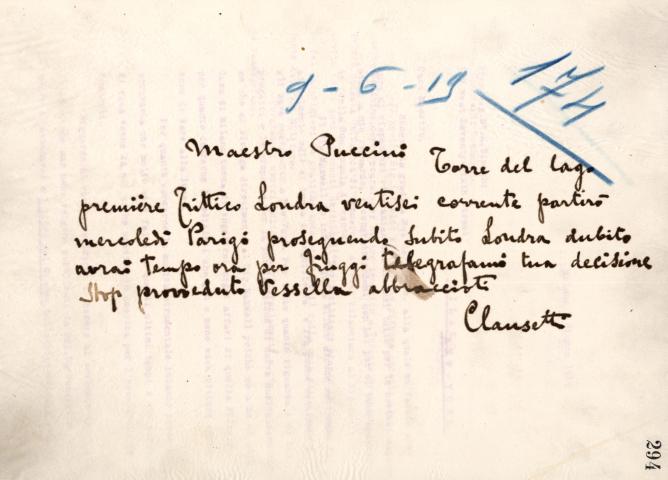 9-6-19 174
Maestro Puccini Torre del lago
première Trittico Londra ventisei corrente partirò
mercoledì Parigi proseguendo subito Londra dubito
avrai tempo ora per Fiuggi telegrafami tua decisione
Stop provveduto Vessella abbraccioti
Clausetti
294